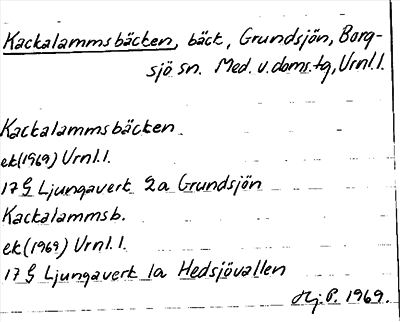 Kackalammsbäcken, bäck, Grundsjön, Borg-
sjö sn. Med. v. doms. tg, Urnl. l.
Kackalammsbäcken
ek (1969) Urnl. l.
17 G Ljungaverk 2a Grundsjön
Kackalammsb.
ek (1969) Urnl. l.
17 G Ljungaverk 1a Hedsjövallen
Hj. P. 1969.